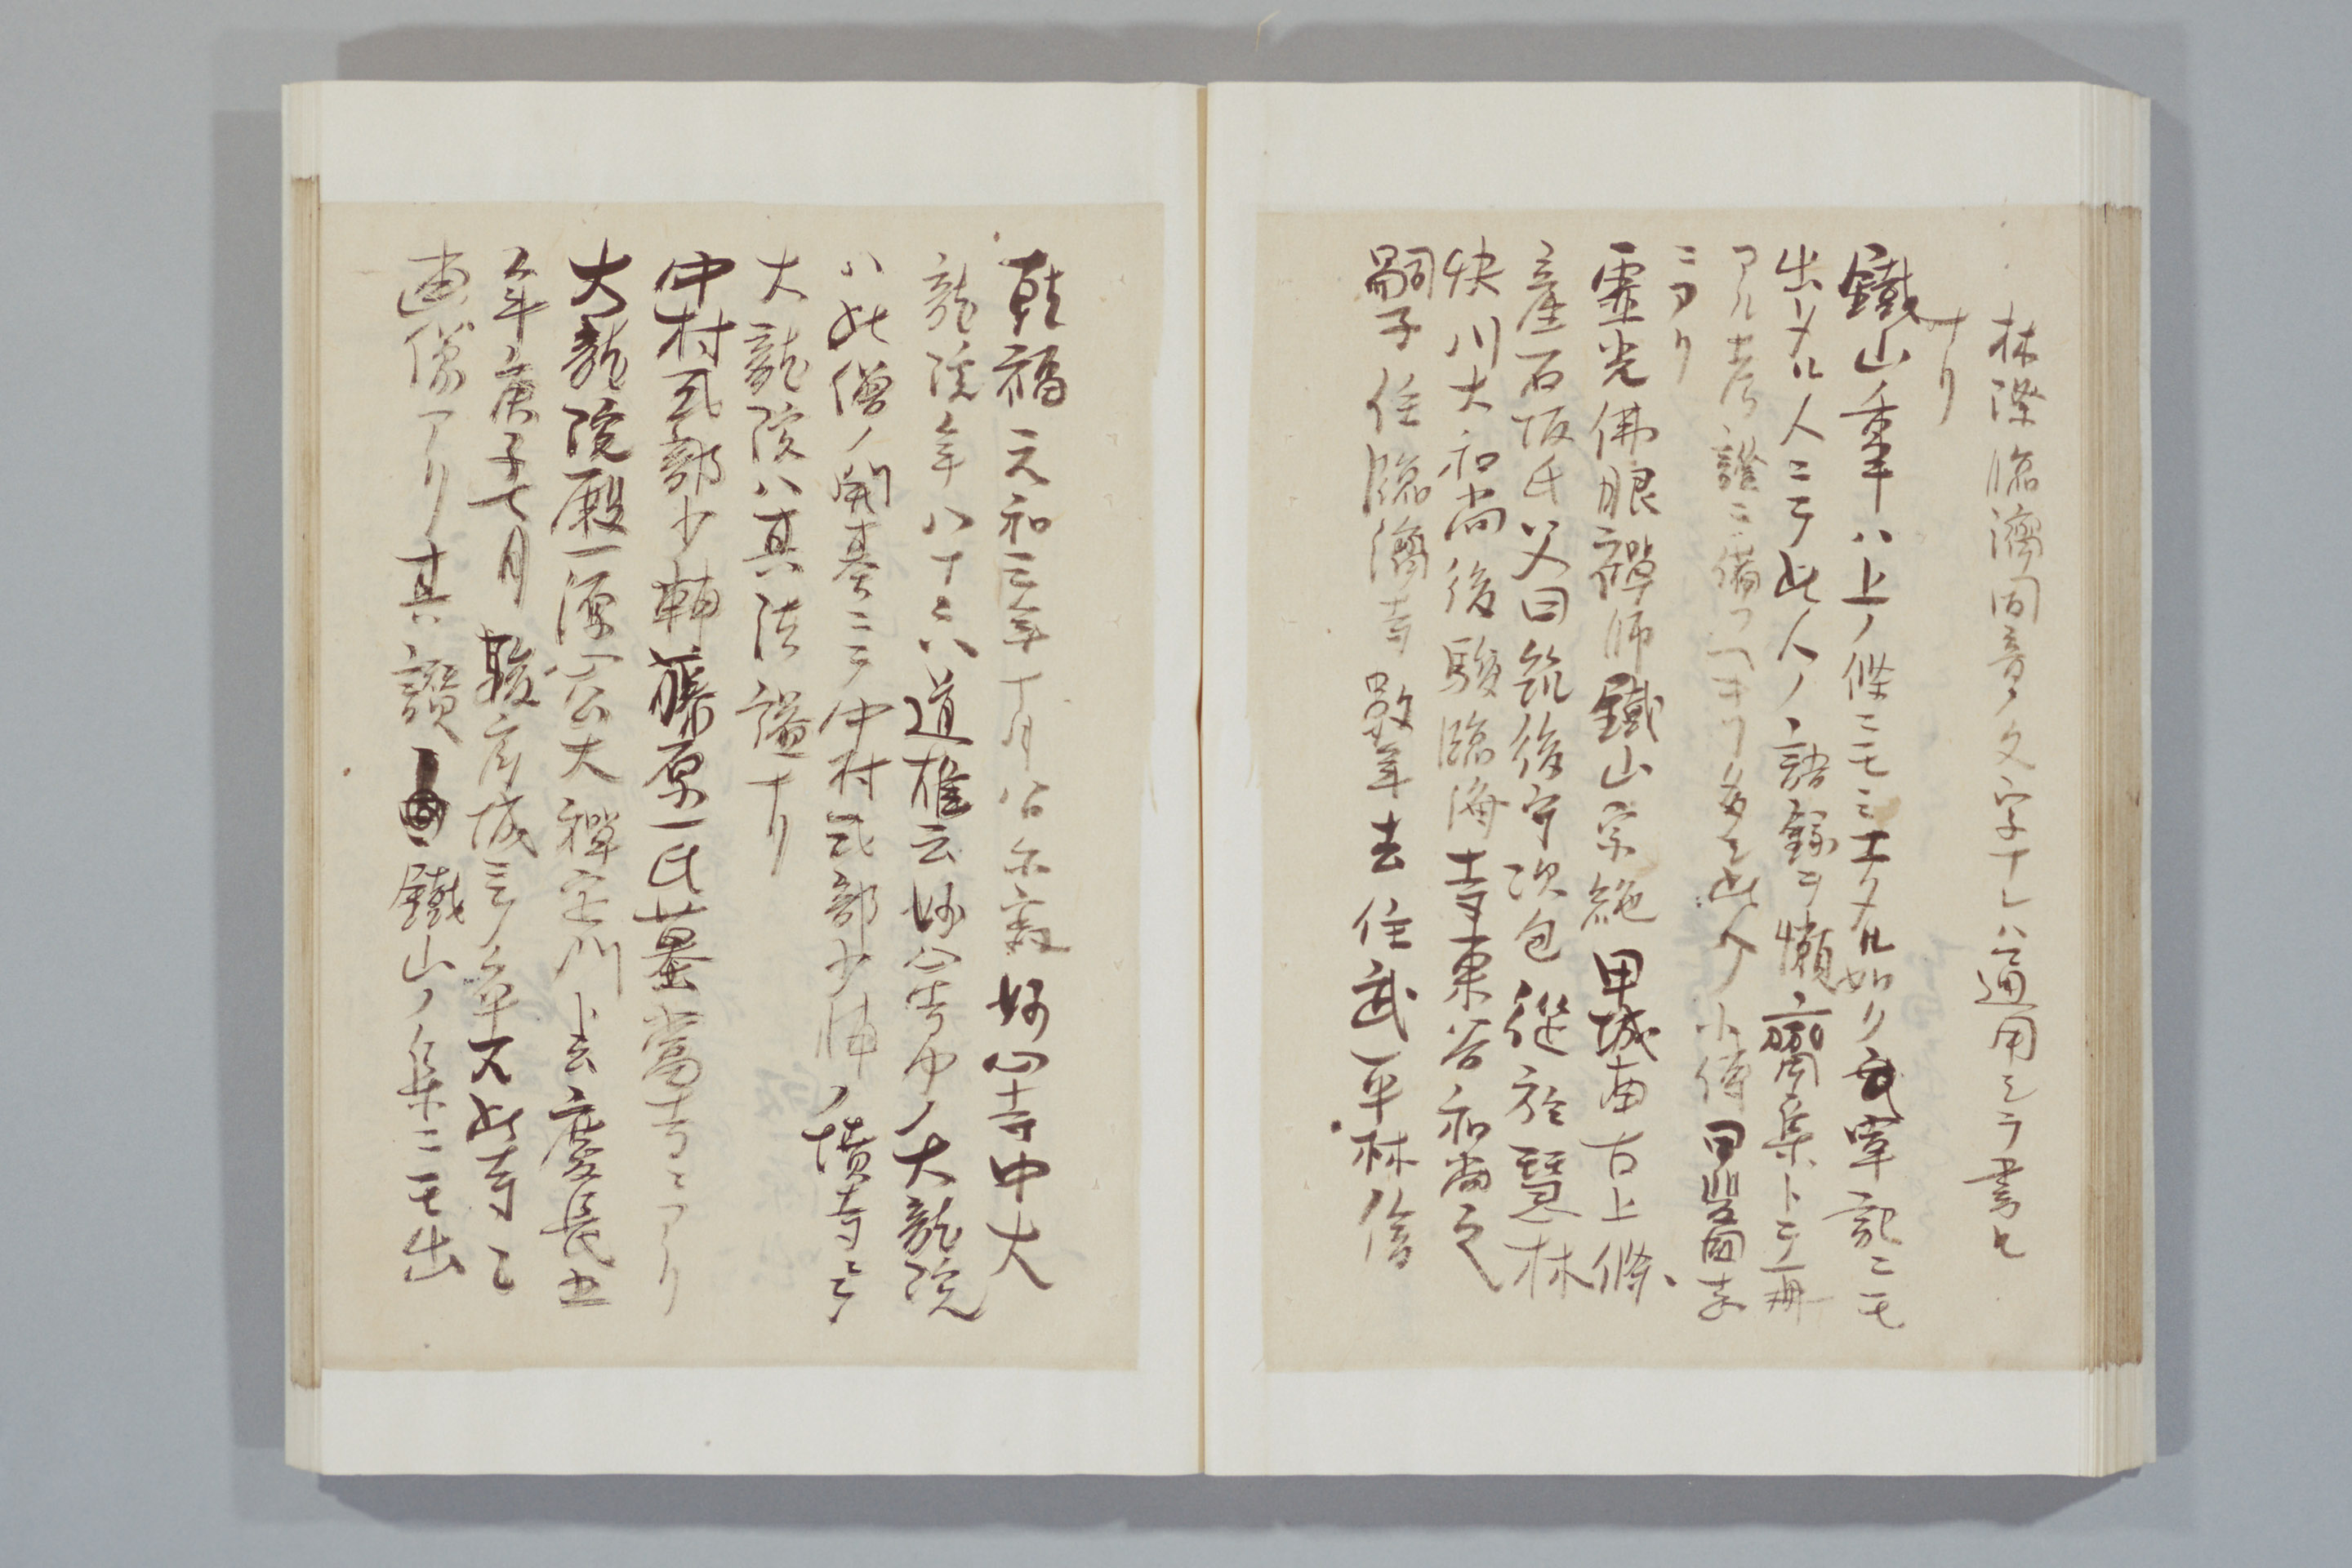 林際臨濟同音ノ文字ナレハ通用シテ書セ
ナリ
鐵山ノ事ハ上ノ條ニモミエタル如ク武軍記ニモ
出タル人ニテ此人ノ語録ヲ懶齋集トテ一冊
アル考證ニ備フヿ多シ此人ノ小傳曰
ニアリ
靈光佛眼禪師鐵山宗純甲城南古上條
産石坂氏父曰筑後守次包從於慧林
快川大和尚後駿臨濟寺東谷和尚之
嗣子住臨濟寺數年去住武平林
乾福元和三年十月八日示寂妙心寺中大
龍院年八十六道雄云妙心寺中ノ大龍院
ハ此僧ノ開基ニテ中村式部少輔ノ墳寺ニテ
大龍院ハ其法諡ナリ
中村式部少輔藤原一氏墓當寺ニアリ
大龍院殿一源心公大禪定門ト云慶長五
年庚子七月駿府城ニテ卒又此寺ニ
画像アリ其讃鐵山ノ集ニモ出